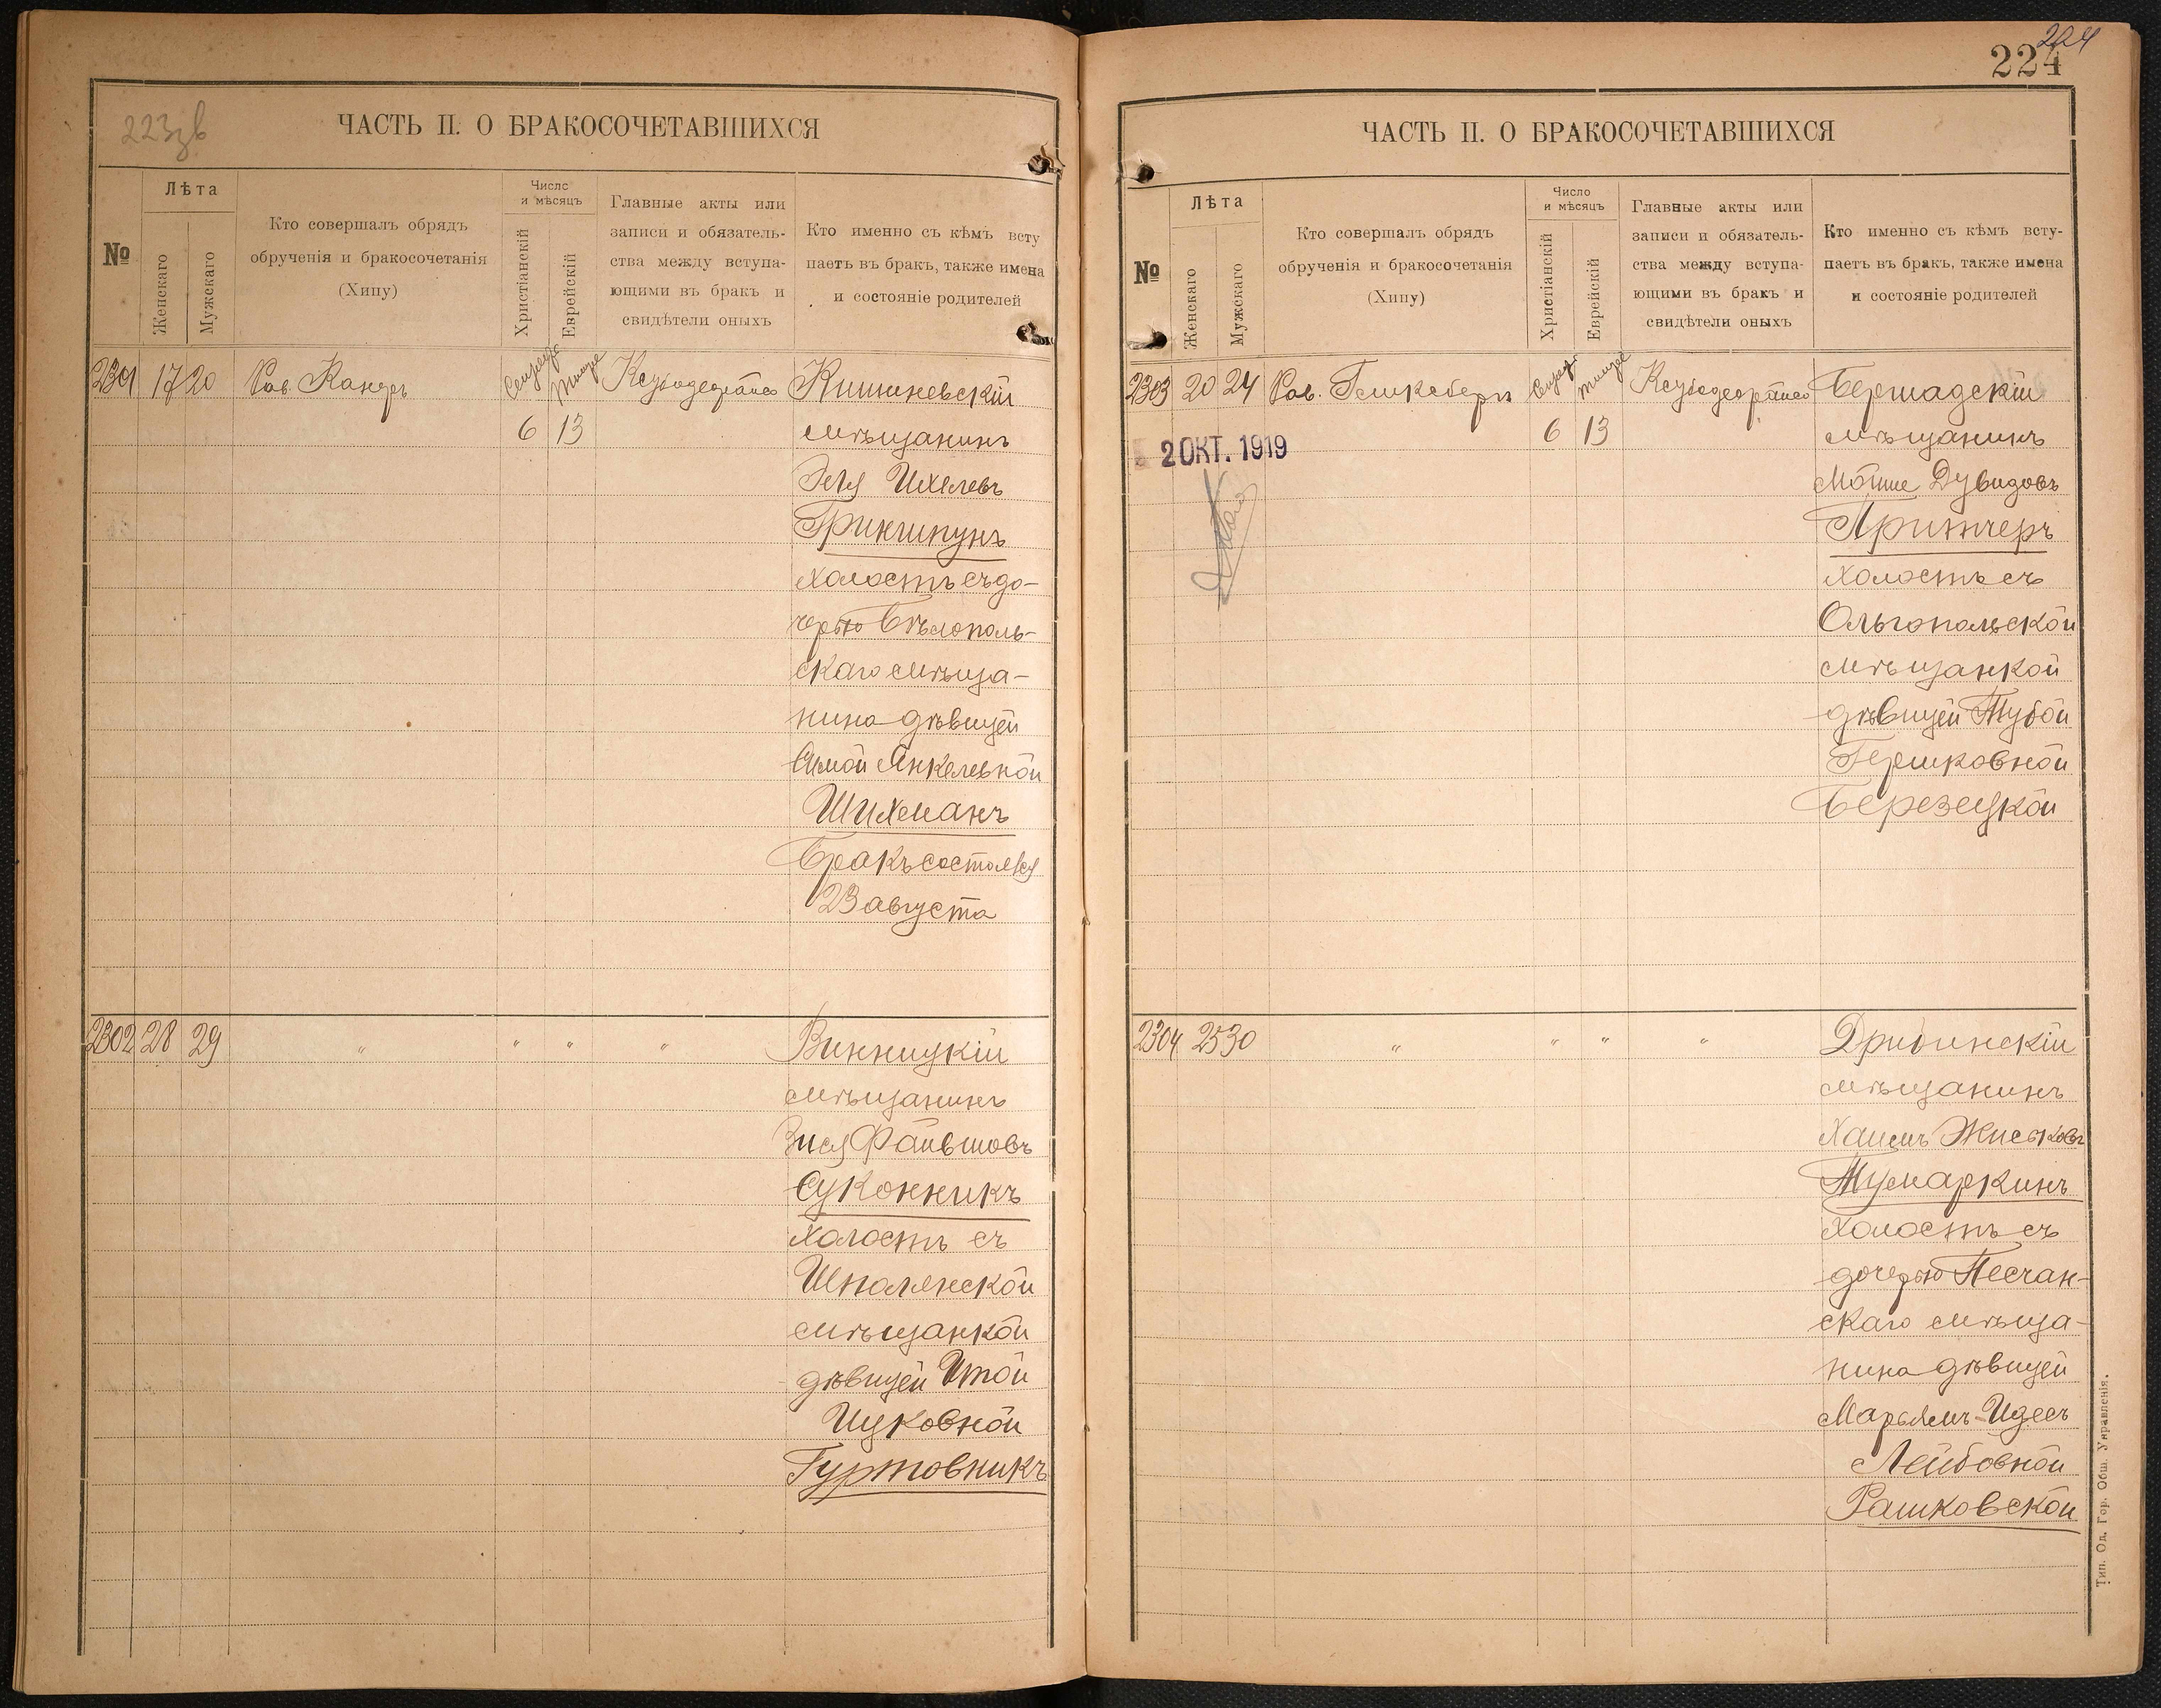 223зв
ЧАСТЬ II. О БРАКОСОЧЕТАВШИХСЯ
№
Лѣта
Женскаго
Мужскаго
Кто совершалъ обрядъ
обрученія и бракосочетанія
(Хипу)
Число
и мѣсяцъ
Христіанскій
Еврейскій
Главные акты или
записи и обязатель-
ства между вступа-
ющими въ бракъ и
свидѣтели оныхъ
Кто именно съ кѣмъ всту
паетъ въ бракъ, также имена
и состояніе родителей
2301 17 20 Рав. Кангръ Кишиневскій
6 13 мѣщанинъ
Эля Ихелевъ
Гринчипунъ
холостъ съ до-
черью Бѣлополь-
скаго мѣща-
нина дѣвицей
Симой Янкелевной
Шихманъ
Бракъ состоялся
23 августа
2302 28 29 " " " " Винницкій
мѣщанинъ
Зися Файвишовъ
Суконникъ
холостъ съ
Шполянской
мѣщанкой
дѣвицей Итой
Ицковной
Гуртовникъ
224
224
ЧАСТЬ II. О БРАКОСОЧЕТАВШИХСЯ
№
Лѣта
Женскаго
Мужскаго
Кто совершалъ обрядъ
обрученія и бракосочетанія
(Хипу)
Число
и мѣсяцъ
Христіанскій
Еврейскій
Главные акты или
записи и обязатель-
ства между вступа-
ющими въ бракъ и
свидѣтели оныхъ
Кто именно съ кѣмъ всту-
паетъ въ бракъ, также имена
и состояніе родителей
2303 20 24 Рав. Бершадскій
6 13 мѣщанинъ
2 ОКТ. 1919
Мошше Дувидовъ
Притчеръ
холостъ съ
Ольгопольской
мѣщанкой
дѣвицей Тубой
Гершковной
Березецкой
2304 25 30 " " " " Дрибинскій
мѣщанинъ
Хаимъ
Тумаркинъ
холостъ съ
дочерью Песчан-
скаго мѣща-
нина дѣвицей
Марьямъ-Идесъ
Лейбовной
Рашковской
Тип. Од. Гор. Общ. Управленія.